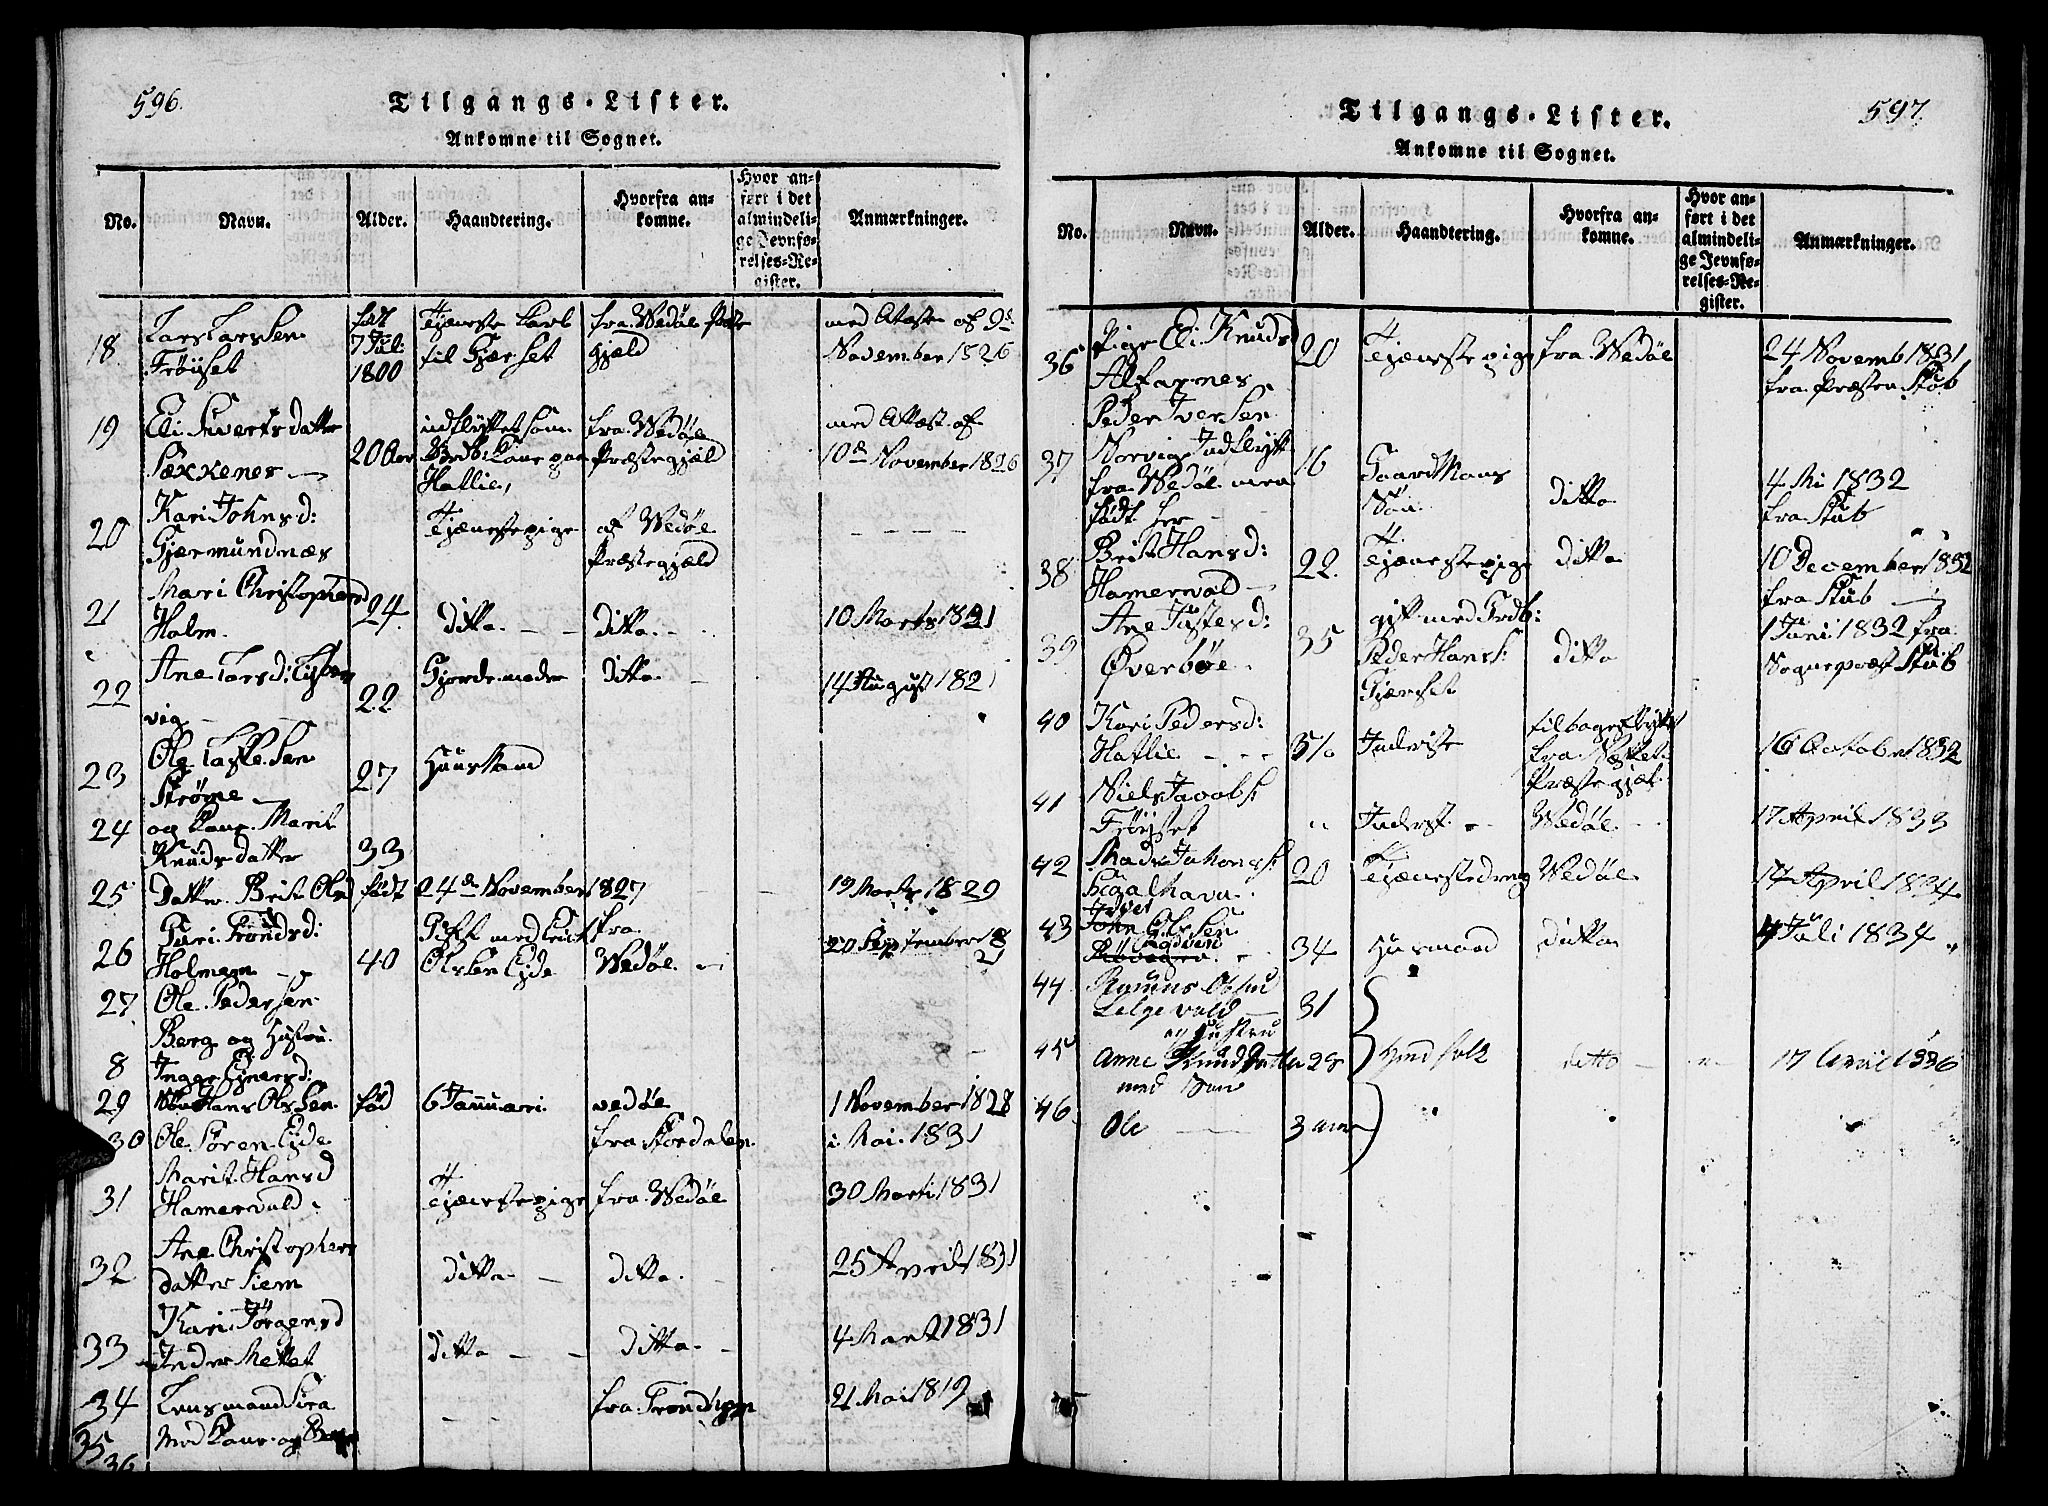 596.
Tilgangs-Lister.
Ankomne til Sognet.
No. Navn. Alder. Haandtering. Hvorfra ankomne. Hvor anført i det almindelige Jevnførelses-Register. Anmærkninger.
18 Lars Larssen Frøiset født 7 Juli 1800 Tjeneste Karl til Gjerset fra Wedøe Præstegjæld med Atæst af 9d: November 1826
19 Eli Siverts datter Sækkenes 20 Aar indflyttet som Kone paa Hatlie, fra Wedøe Præstegjæld med Attæst af 10de November 1826
20 Kari Johnsd: Gjermundnæs Tjenestepige af Wedøe Præstegjæld
21 Mari Christophersd Holm. 24 ditto ditto 10 Marts 1821
22 Ane Larsd: vig 22 Gjordemoder ditto 14 August 1821
23 Ole Lasse Sen Strøme 27 Huusmand
24 og Kone Marit Knudsdatter 33
25 Datter Brit Olsd født 24de November 1827 19 Marts 1829
26 Guri Trondsd: Holmem 40 Gift med Erick Olssen Eide fra Wedøe 20 September 1821
27 Ole Pedersen Berg og Hustru
8 Inger Ejnersd:
29 Søn Hans Olssen fød 6 Januari vedøe 1 November 1828
30 Ole Søren Eide fra Stordalen i Mai 1831
31 Marit Hansd Hamervold Tjenestepige fra Wedøe 30 Marti 1831
32 Ane Christophers datter Siem ditto ditto 25 April 1831
33 Kari Jørgensd Inder Mettet ditto ditto 4 Mart 1831
34 Lensmand Sira fra Trondhjem 21 Mai 1819
35 Med Kone og
36
597.
Tilgangs-Lister.
Ankomne til Sognet.
No. Navn. Alder. Haandtering. Hvorfra ankomne. Hvor anført i det almindelige Jevnførelses-Register. Anmærkninger.
36 Pige Eli Knudsd Alfarnes 20 Tjenestepige fra Wedøe 24 Novemb 1831 fra Præsten Stub
37 Peder Iversen Norvig Indflytt fra Wedøe men født her 16 Gaardmans Søn ditto 4 Mi 1832 fra Stub
38 Brit Hansd: Hamervold 22. Tjenestepige ditto 10 December 1832 fra Stub
39 Ane Justesd: Øverbøe 35 gift med Peder Hans: Gjerset ditto 1 Juni 1832 fra Sognepræst Stub
40 Kari Pedersd: Hatlie Inderste tilbageflyttet fra Næsset Præstegjæl. 16 October 1832
41 Niels Jacobs: Frøyset " Inderst Wedøe 17 April 1833
42 Mads 20 Tjenestedreng Wedøe 14 April 1834
43 John Olssen 34 Husmand ditto 4 Juli 1834
44 Rasmus Olsen 31
og Hustru
45 Anne Knudsdatter 28 Huusfolk detto 17 April 1836
med Søn
46. Ole 3 aar